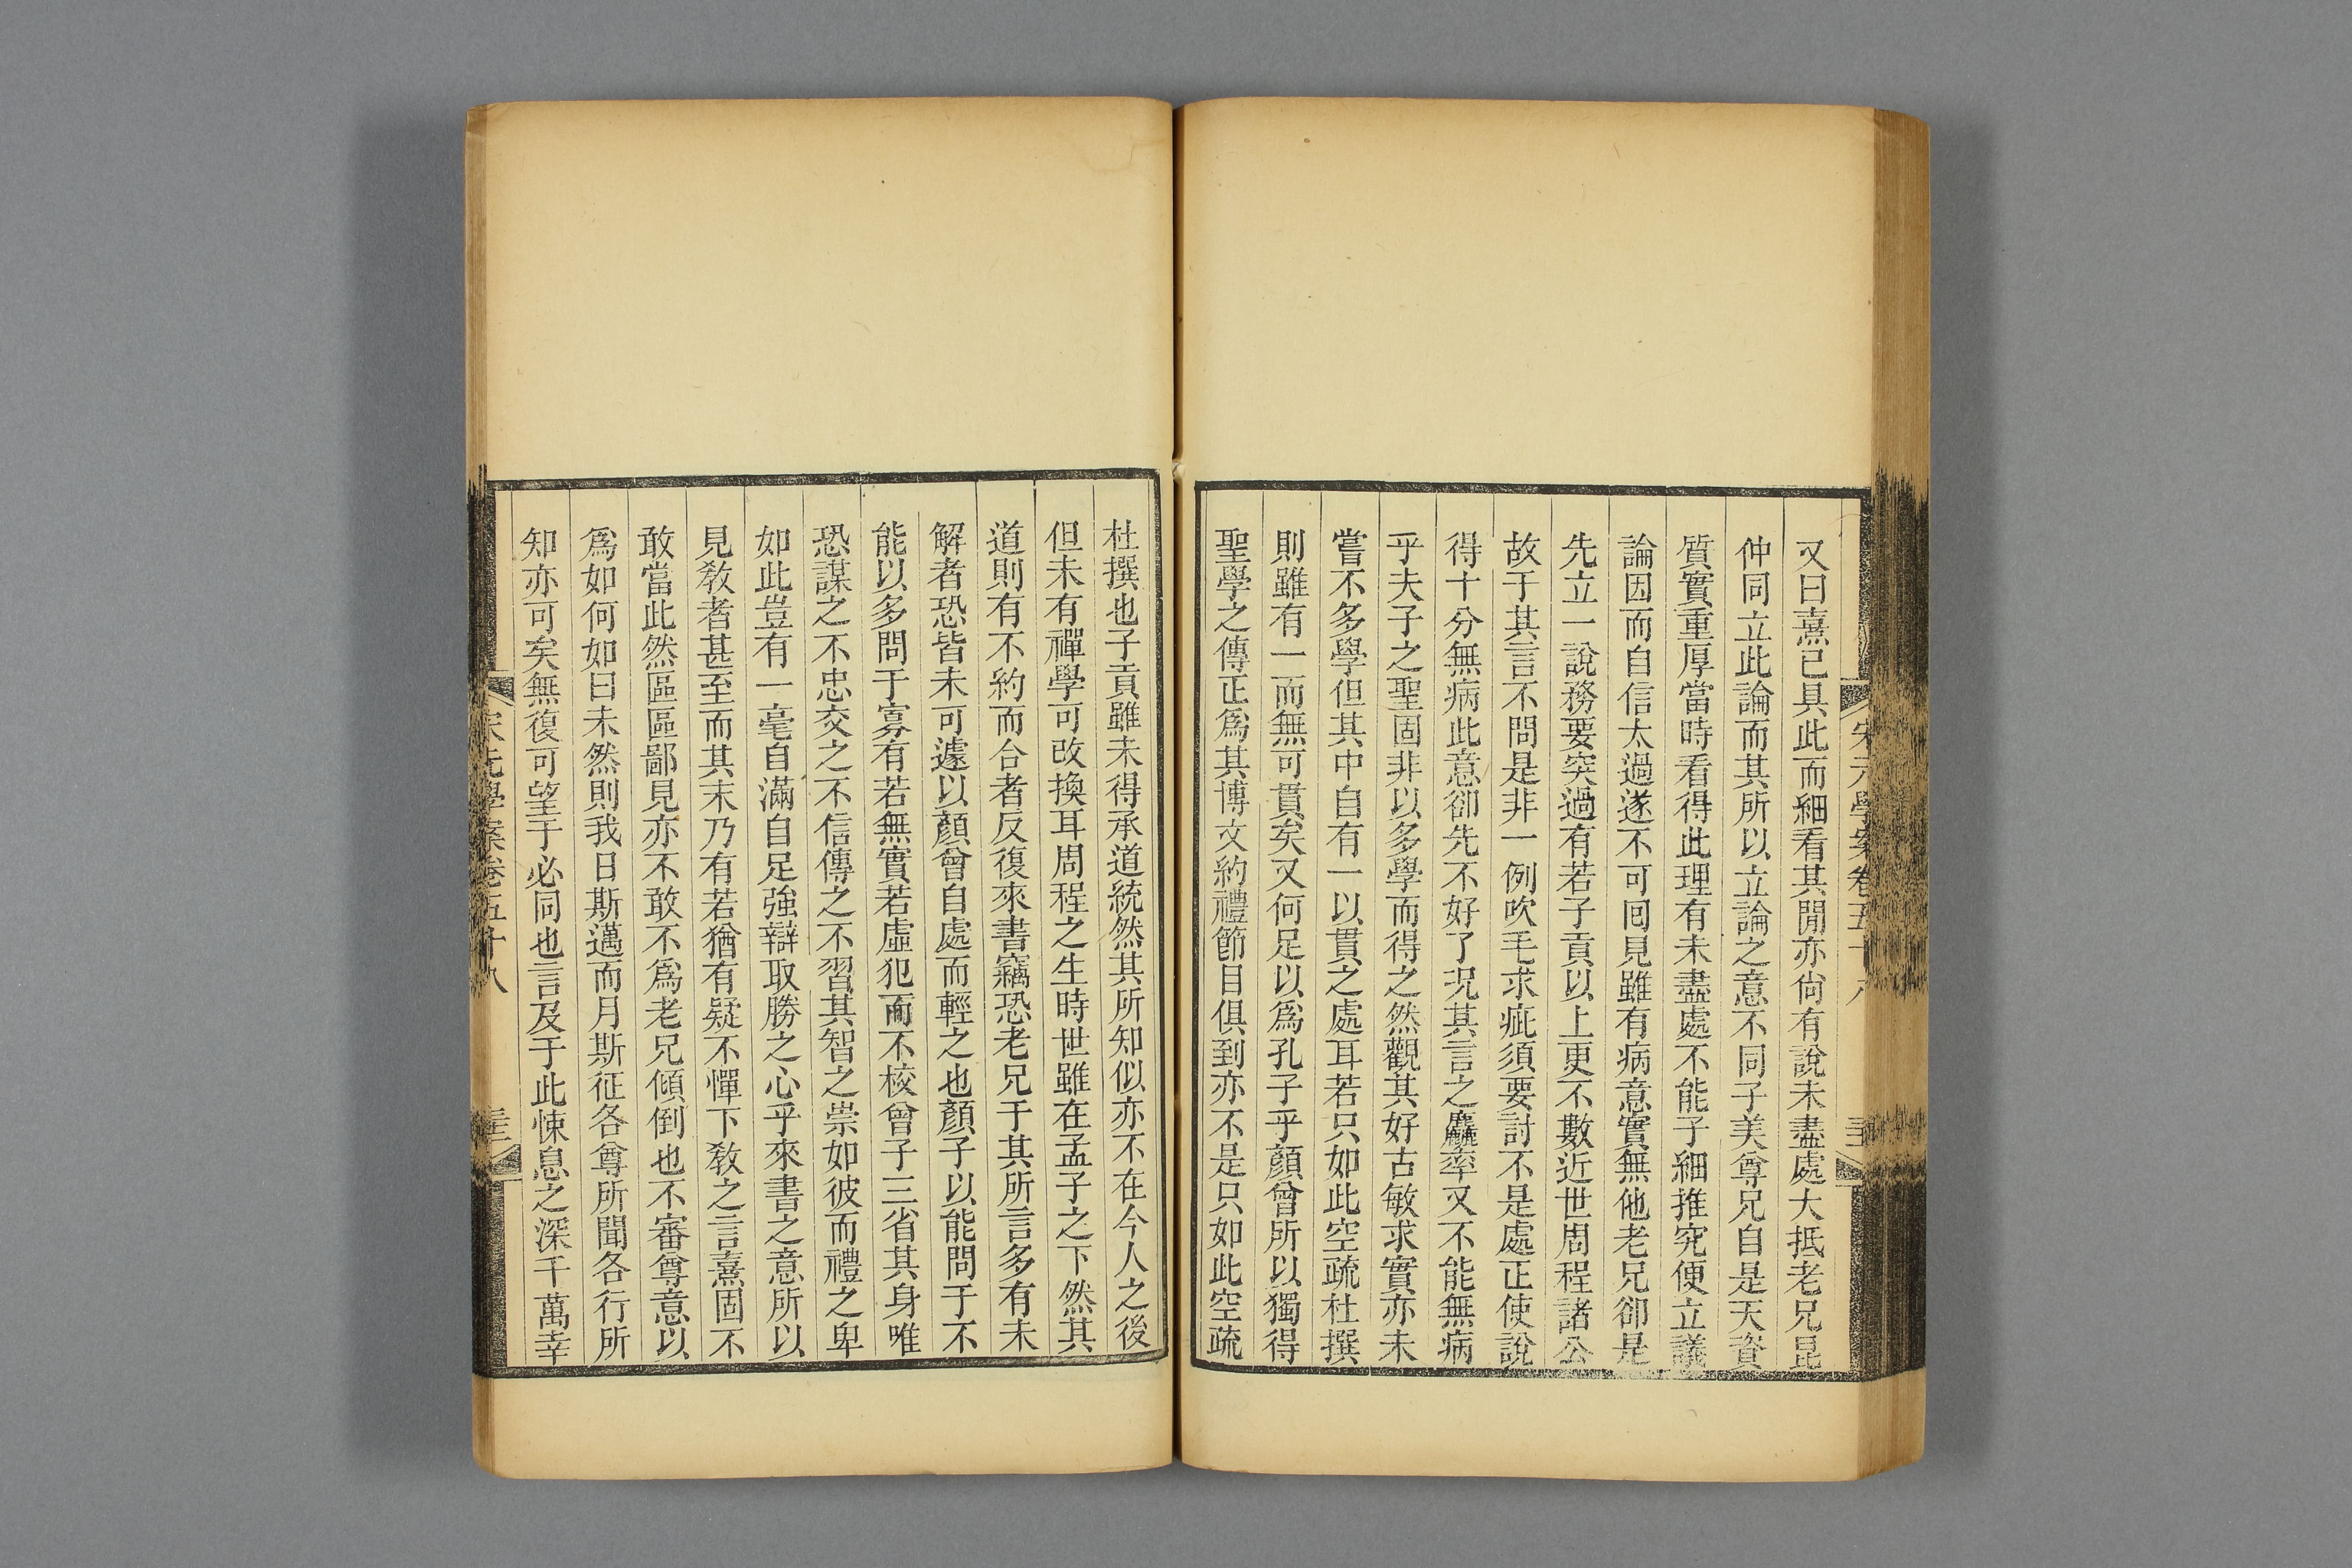 宋元學案卷五十八
又曰熹已具此而細看其閒亦尙有說未盡處大抵老兄昆
仲同立此論而其所以立論之意不同子美尊兄自是天資
質實重厚當時看得此理有未盡處不能子細推究便立議
論因而自信太過遂不可囘見雖有病意實無他老兄卻是
先立一說務要突過有若子貢以上更不數近世周程諸公
故于其言不問是非一例吹毛求疵須要討不是處正使說
得十分無病此意卻先不好了況其言之麤率又不能無病
乎夫子之聖固非以多學而得之然觀其好古敏求實亦未
嘗不多學但其中自有一以貫之處耳若只如此空疏杜撰
則雖有一而無可貫矣又何足以爲孔子乎顏曾所以獨得
聖學之傳正爲其博文約禮節目俱到亦不是只如此空疏
杜撰也子貢雖未得承道統然其所知似亦不在今人之後
但未有禪學可改換耳周程之生時世雖在孟子之下然其
道則有不約而合者反復來書竊恐老兄于其所言多有未
解者恐皆未可遽以顏曾自處而輕之也顏子以能問于不
能以多問于寡有若無實若虛犯而不校曾子三省其身唯
恐謀之不忠交之不信傳之不習其智之崇如彼而禮之卑
如此豈有一毫自滿自足強辯取勝之心乎來書之意所以
見敎者甚至而其末乃有若猶有疑不憚下敎之言熹固不
敢當此然區區鄙見亦不敢不爲老兄傾倒也不審尊意以
爲如何如曰未然則我日斯邁而月斯征各尊所聞各行所
知亦可矣無復可望于必同也言及于此悚息之深千萬幸
宋元學案卷五十八